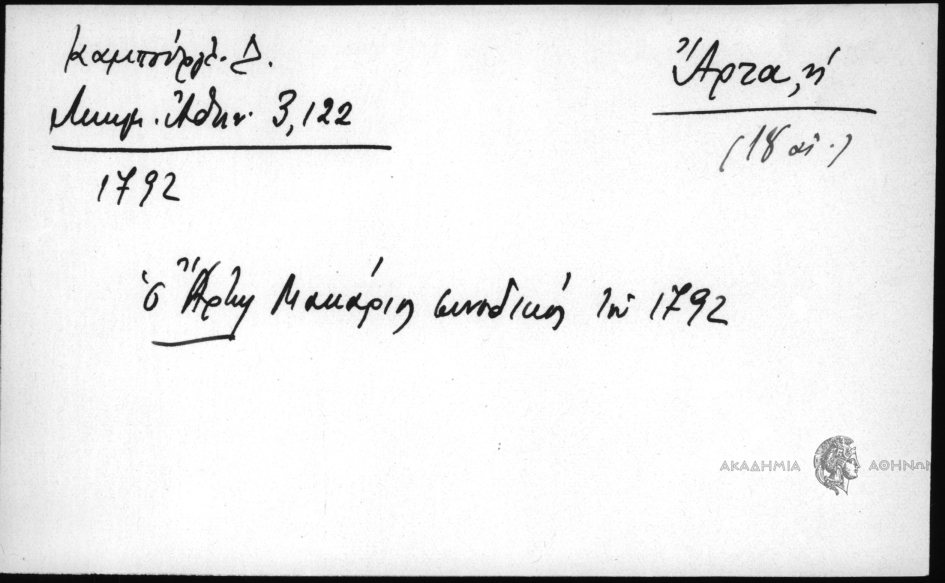 Καμπούρογλ. Δ.
Μνημ. Ἀθην. 3,122
1792
Ἄρτα, ἡ
(18 αἰ.)
ὁ Ἄρτης Μακάριος συνοδικός τοῦ 1792
ΑΚΑΔΗΜΙΑ ΑΘΗΝΩΝ